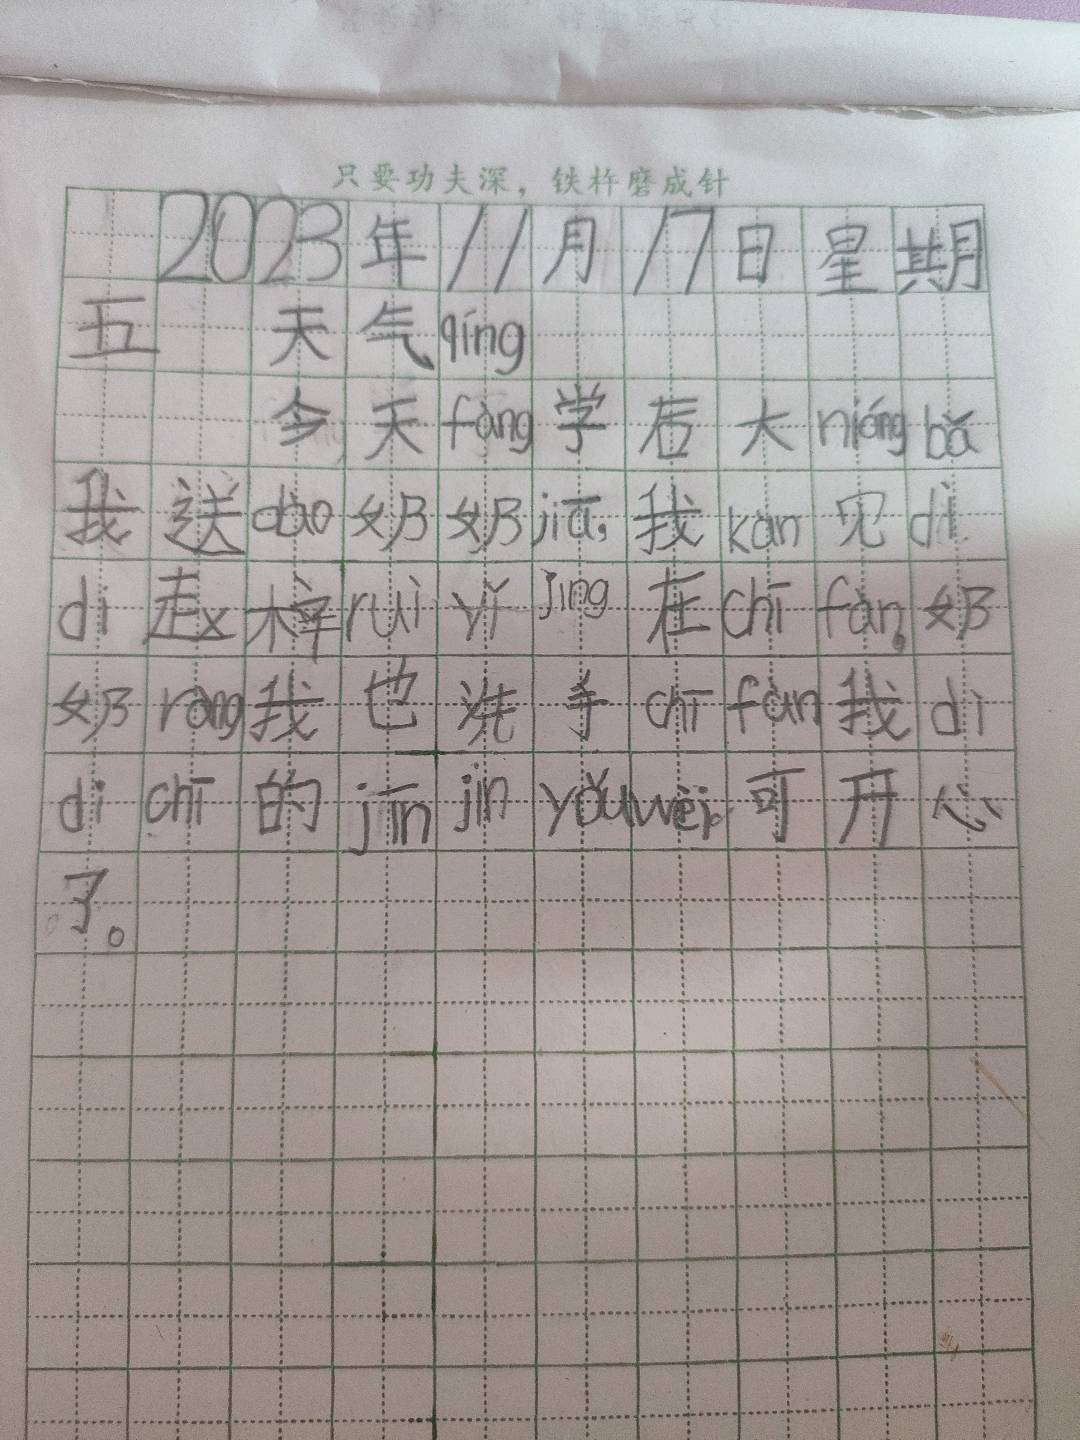 只要功夫深，铁杵磨成针
2023年11月17日星期
五 天气qíng
今天fàng学后大niáng bǎ
我送dào奶奶jiā,我kàn见dì
di走x梓ruì yǐ jīng在chī fàn。奶
奶ràng我也洗手chī fàn我dì
di chī的jīn jīn yǒu wèi。可开心
了。